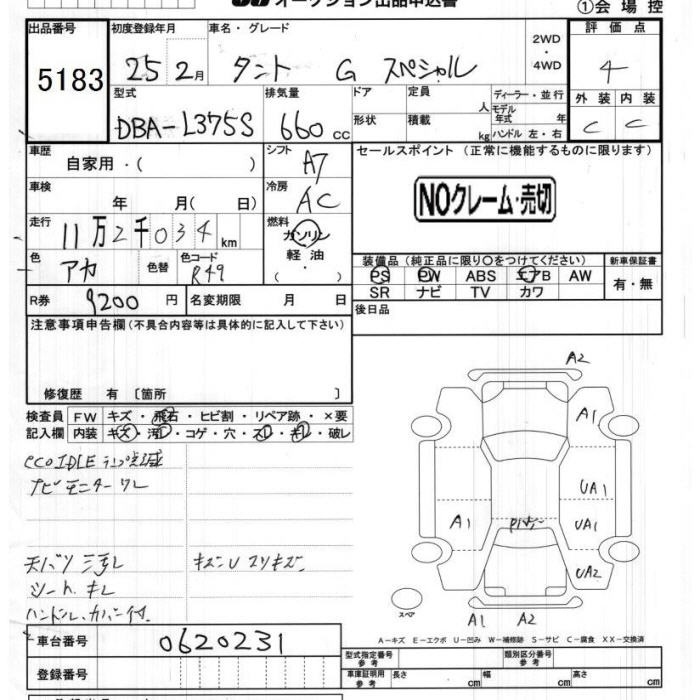 オークション出品申込書 ①会場控
出品番号 初度登録年月 車名・グレード 2WD・4WD 評価点
5183 25 2月 タント G スペシャル 4
型式 排気量 ドア 定員 人 ディーラー・並行 外装 内装
DBA-L375S 660cc 形状 積載 kg モデル年式 年 ハンドル 左・右 C C
車歴 シフト セールスポイント (正常に機能するものに限ります)
自家用・( ) A7
車検 冷房 NOクレーム・売切
年 月( 日) AC
走行 燃料
11万2千034km ガソリン
色 色替 色コード 軽油
アカ R49 ( )
装備品 (純正品に限り〇をつけてください) 新車保証書
PS PW ABS エアB AW 有・無
SR ナビ TV カワ
R券 9200円 名変期限 月 日 後日品
注意事項申告欄(不具合内容等は具体的に記入して下さい)
修復歴 有 [箇所 ]
検査員 FW キズ・飛石・ヒビ割・リペア跡・×要
記入欄 内装 キズ・汚レ・コゲ・穴・スレ・キレ・破レ
eco IDLE ランプ点滅
ナビモニターワレ
天バリ汚レ キズU スリキズ
シートキレ
ハンドルカバー付
A2
A1
UA1
A1 UA1
UA2
スペア
A1 A2
A-キズ E-エクボ U-凹み W-補修跡 S-サビ C-腐食 XX-交換済
車台番号 0620231
登録番号
型式指定番号 参考 類別区分番号 参考
車庫証明用 参考 長さ cm 幅 cm 高さ cm